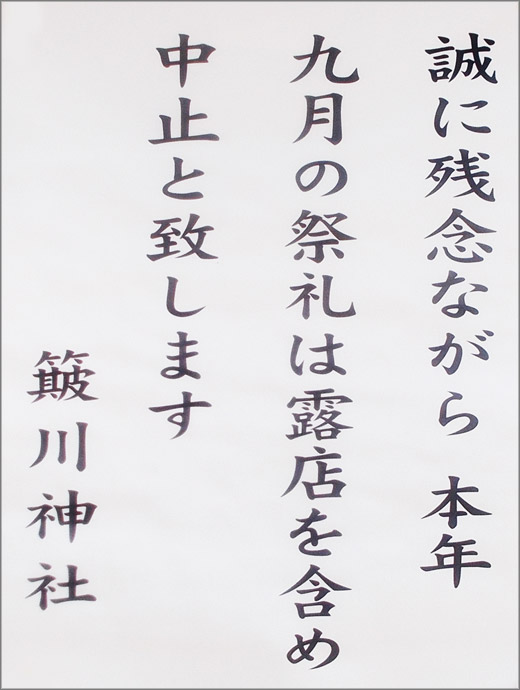 誠に残念ながら 本年
九月の祭礼は露店を含め
中止と致します
簸川神社